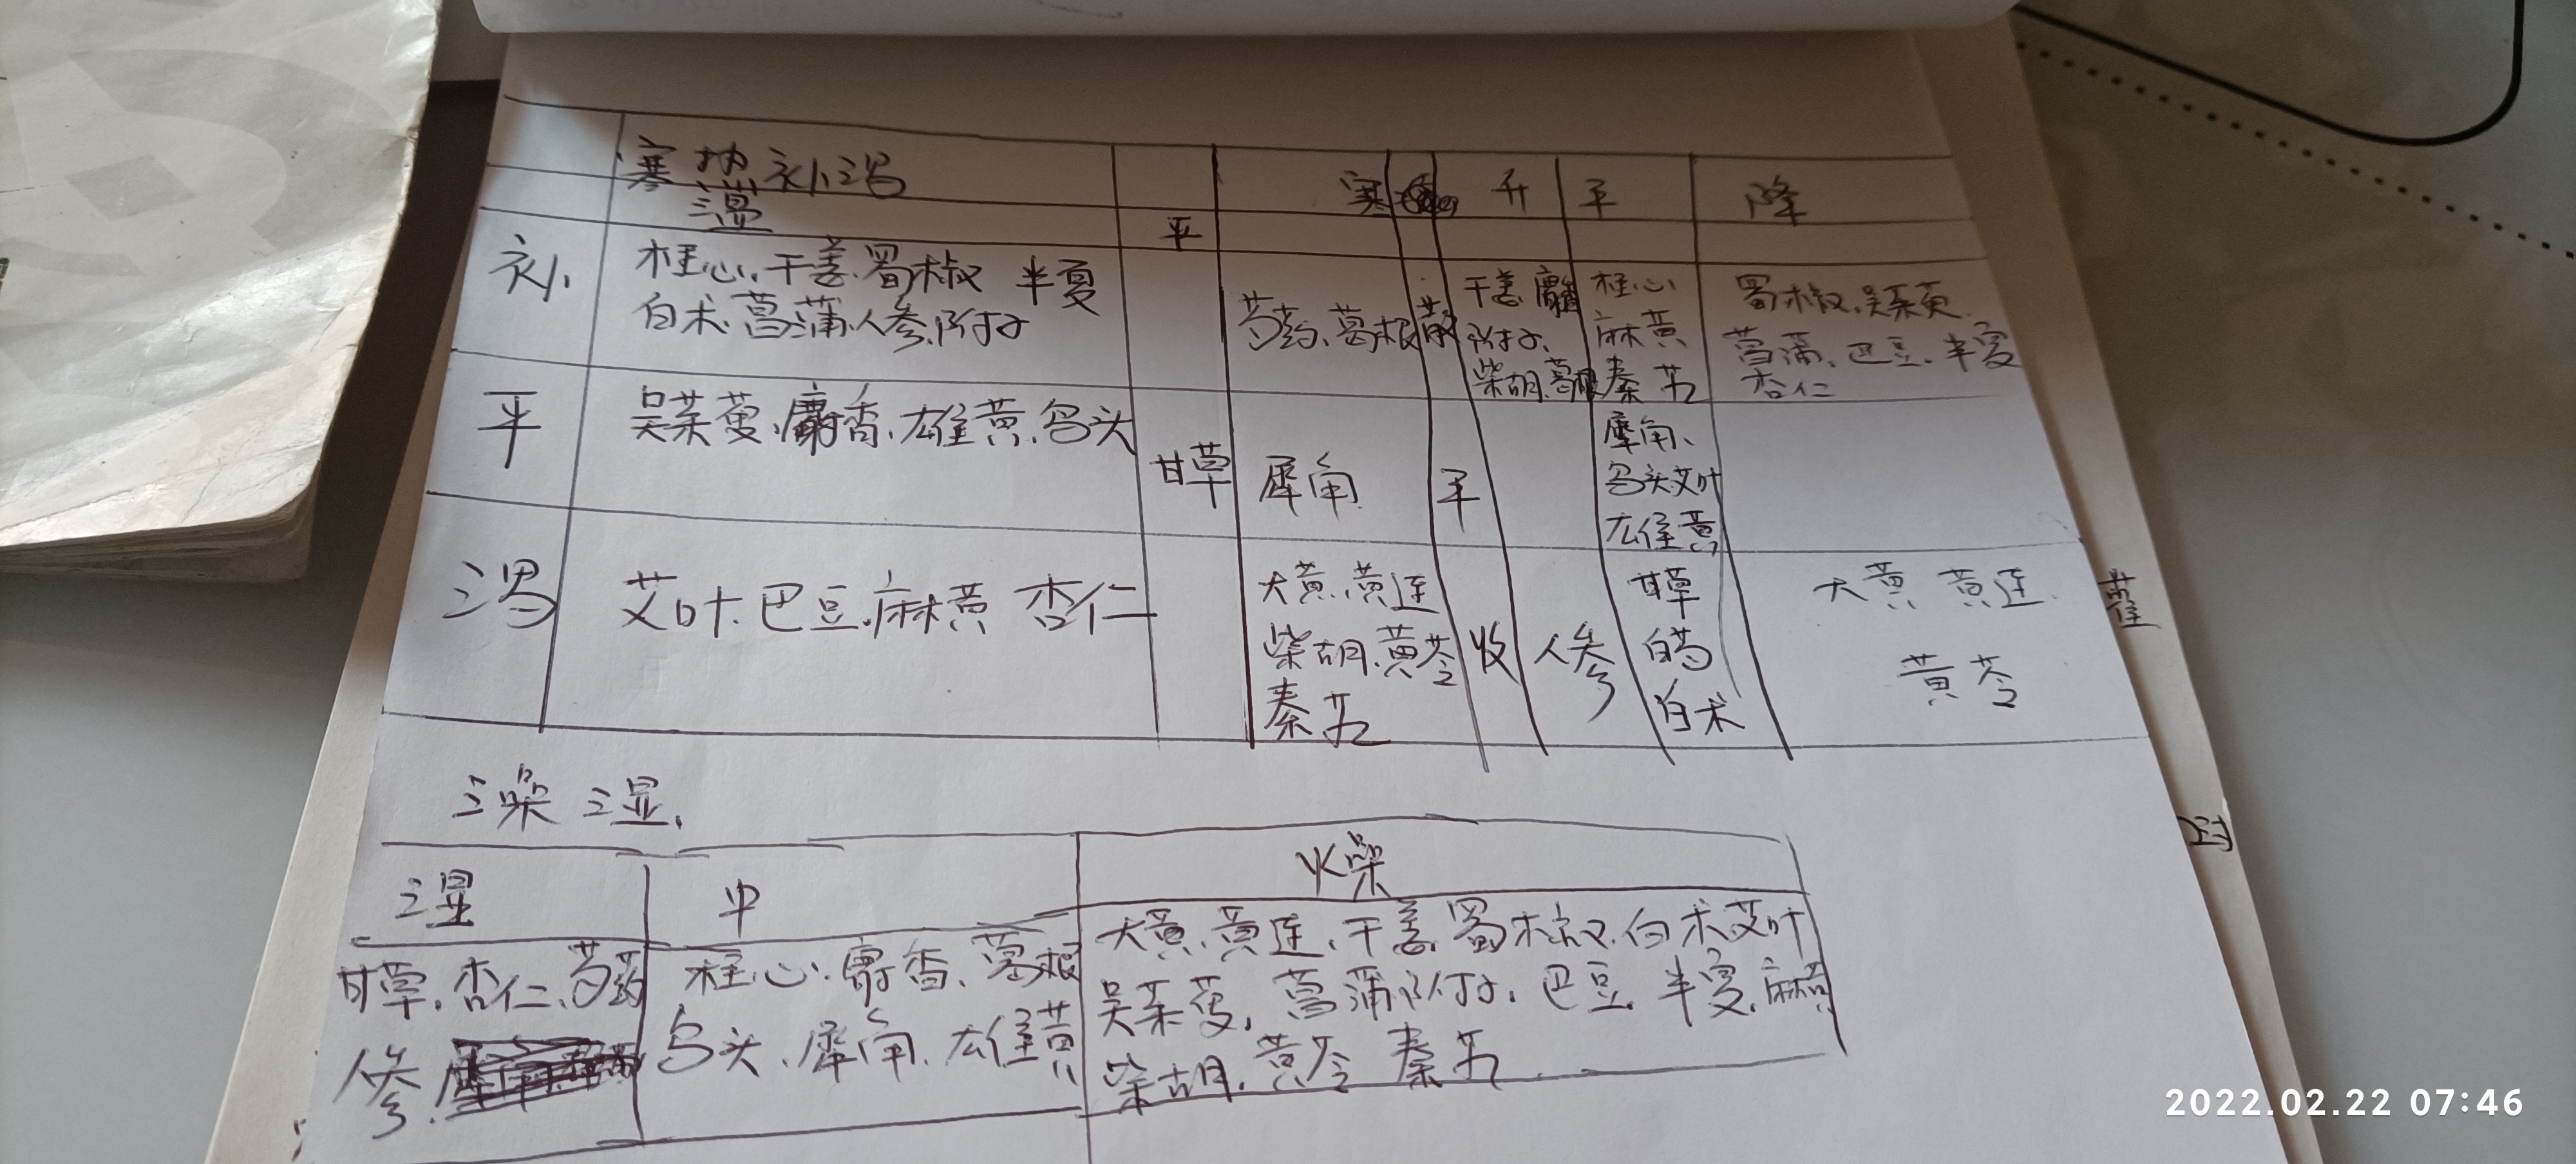 寒热补泻
湿
平
寒
升
平
降
补
桂心、干姜、蜀椒 半夏
白术、菖蒲、人参、附子
芍药、葛根
散
干姜、麝
附子、
柴胡、葛根
桂心
麻黄
秦艽
蜀椒、吴茱萸
菖蒲、巴豆、半夏
杏仁
平
吴茱萸、麝香、雄黄、乌头
甘草
犀角
平
犀角、
乌头、艾叶
雄黄
泻
艾叶、巴豆、麻黄 杏仁
大黄、黄连
柴胡、黄芩
秦艽
收
人参
甘草
白芍
白术
大黄 黄连
黄芩
藿
燥湿、
湿
中
火燥
甘草、杏仁、芍药
人参、
桂心、麝香、葛根
乌头、犀角、雄黄
大黄、黄连、干姜、蜀椒、白术、艾叶
吴茱萸、菖蒲、附子、巴豆、半夏、麻黄
柴胡、黄芩 秦艽
2022.02.22 07:46